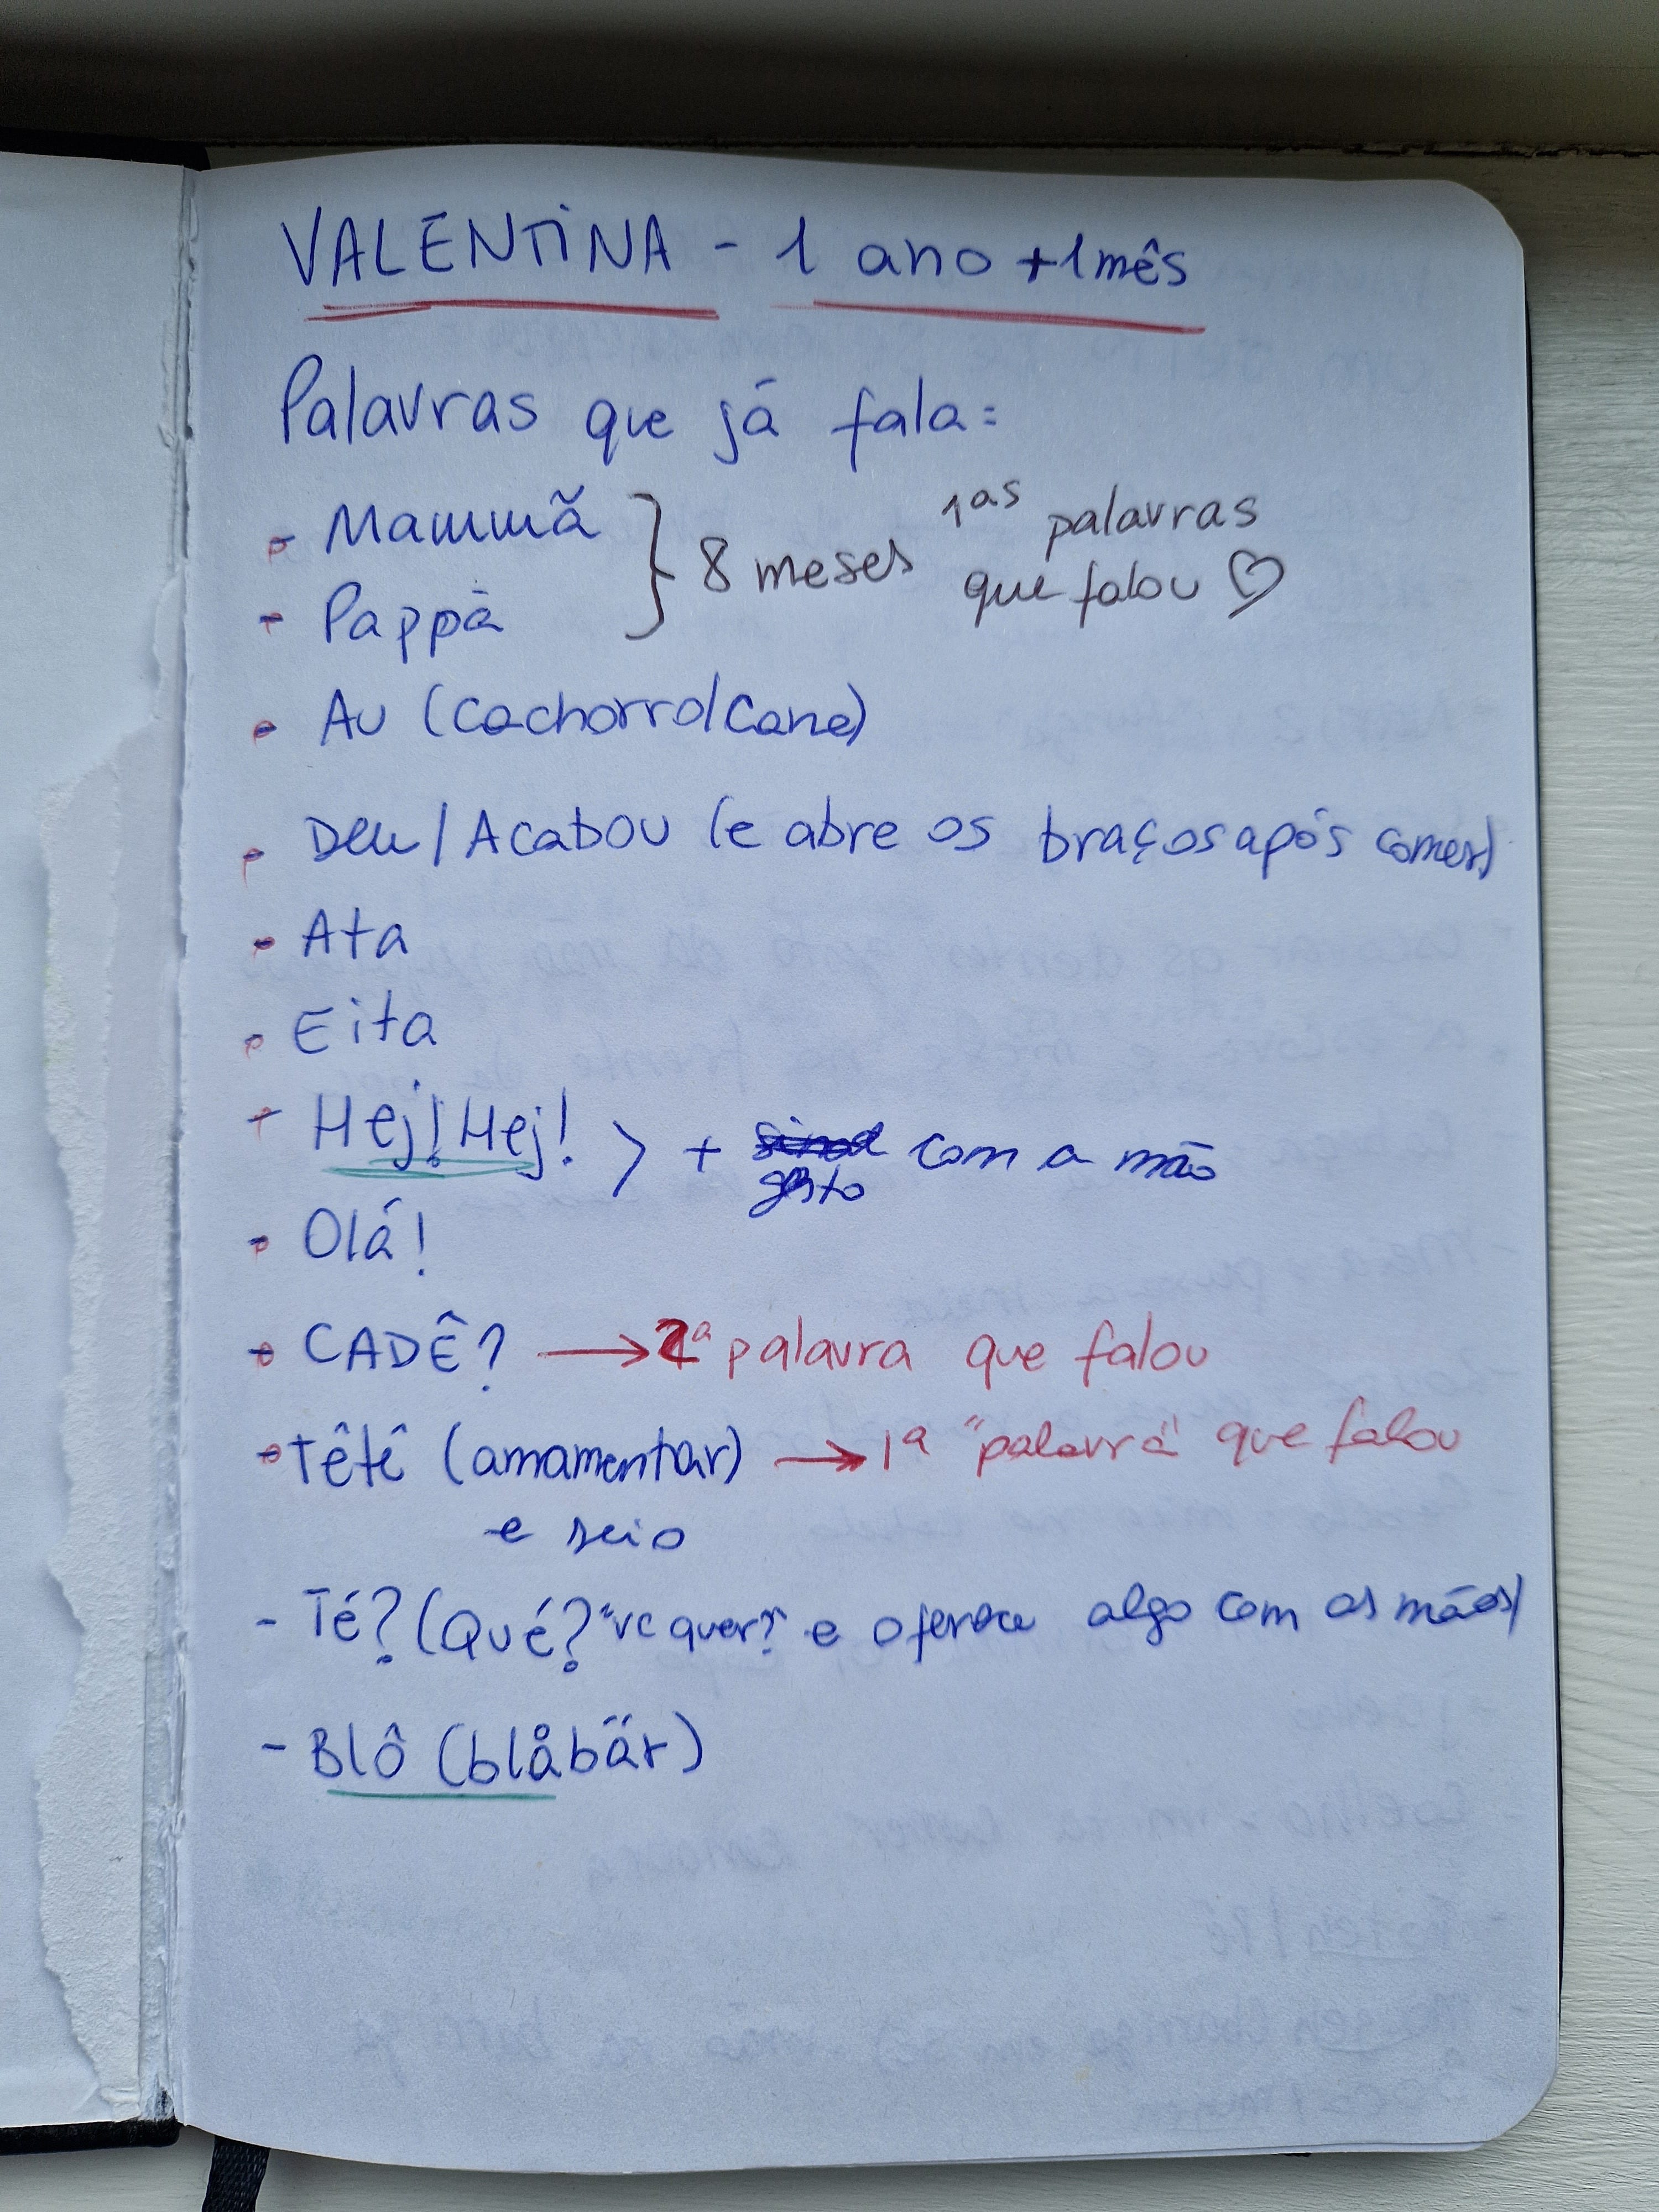 VALENTINA - 1 ano +1mês
Palavras que já fala:
- Mammã } 8 meses 1as palavras
- Pappà que falou ♡
- Au (cachorro/cane)
- Deu/Acabou (e abre os braços após comer)
- Ata
- Eita
- Hej! Hej! > + gesto com a mão
- Olá!
- CADÊ? → 2ª palavra que falou
- Têtê (amamentar) → 1ª "palavra" que falou
e seio
- Té? (Qué? "vc quer?" e oferece algo com as mãos)
- Blô (blåbär)